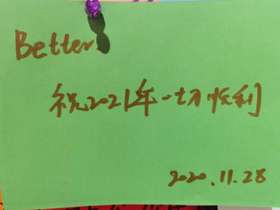 Better
祝2021年一切顺利
2020.11.28